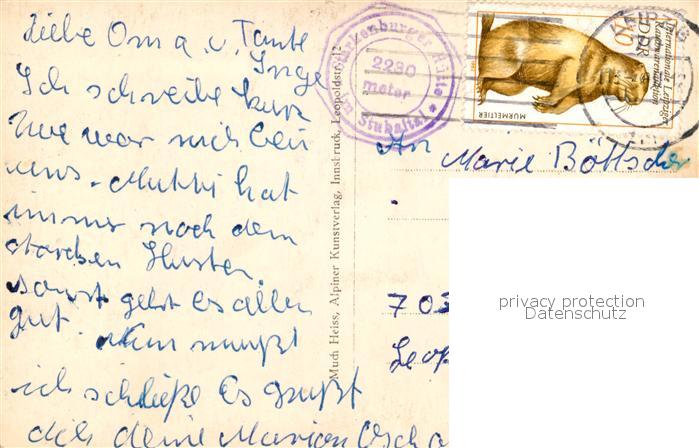 Liebe Oma u. Tante
Inge
Ich schreibe kurz
Uwe war mich bei
uns. Mutti hat
immer noch den
starken Husten
sonst geht es allen
gut. Nun muß
ich schließe Es grüßt
dich deine Marion
Nürnberger Hütte
2280
meter
Stubaital
Much Heiss, Alpiner Kunstverlag, Innsbruck, Leopoldstr. 12
Internationale Leipziger
Rauchwarenauktion
DDR
10
MURMELTIER
An Marie Böttcher
703
Leop
privacy protection
Datenschutz